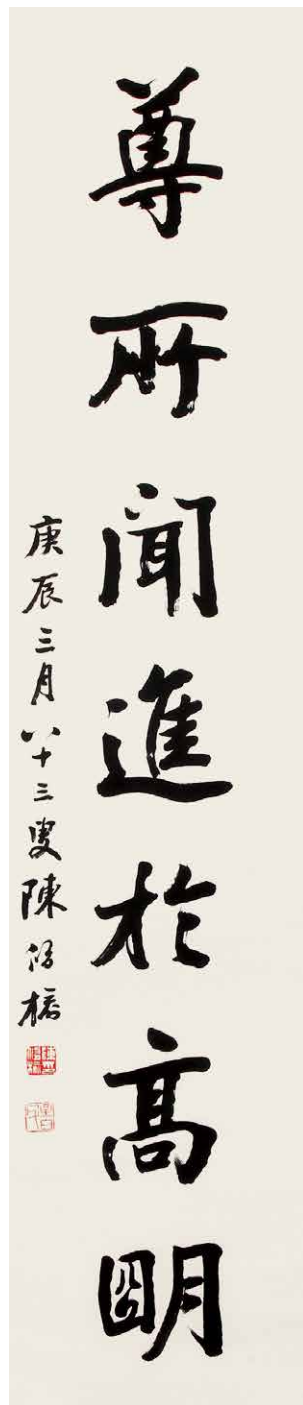 尊所聞進於高朙
庚辰三月八十三叟陳